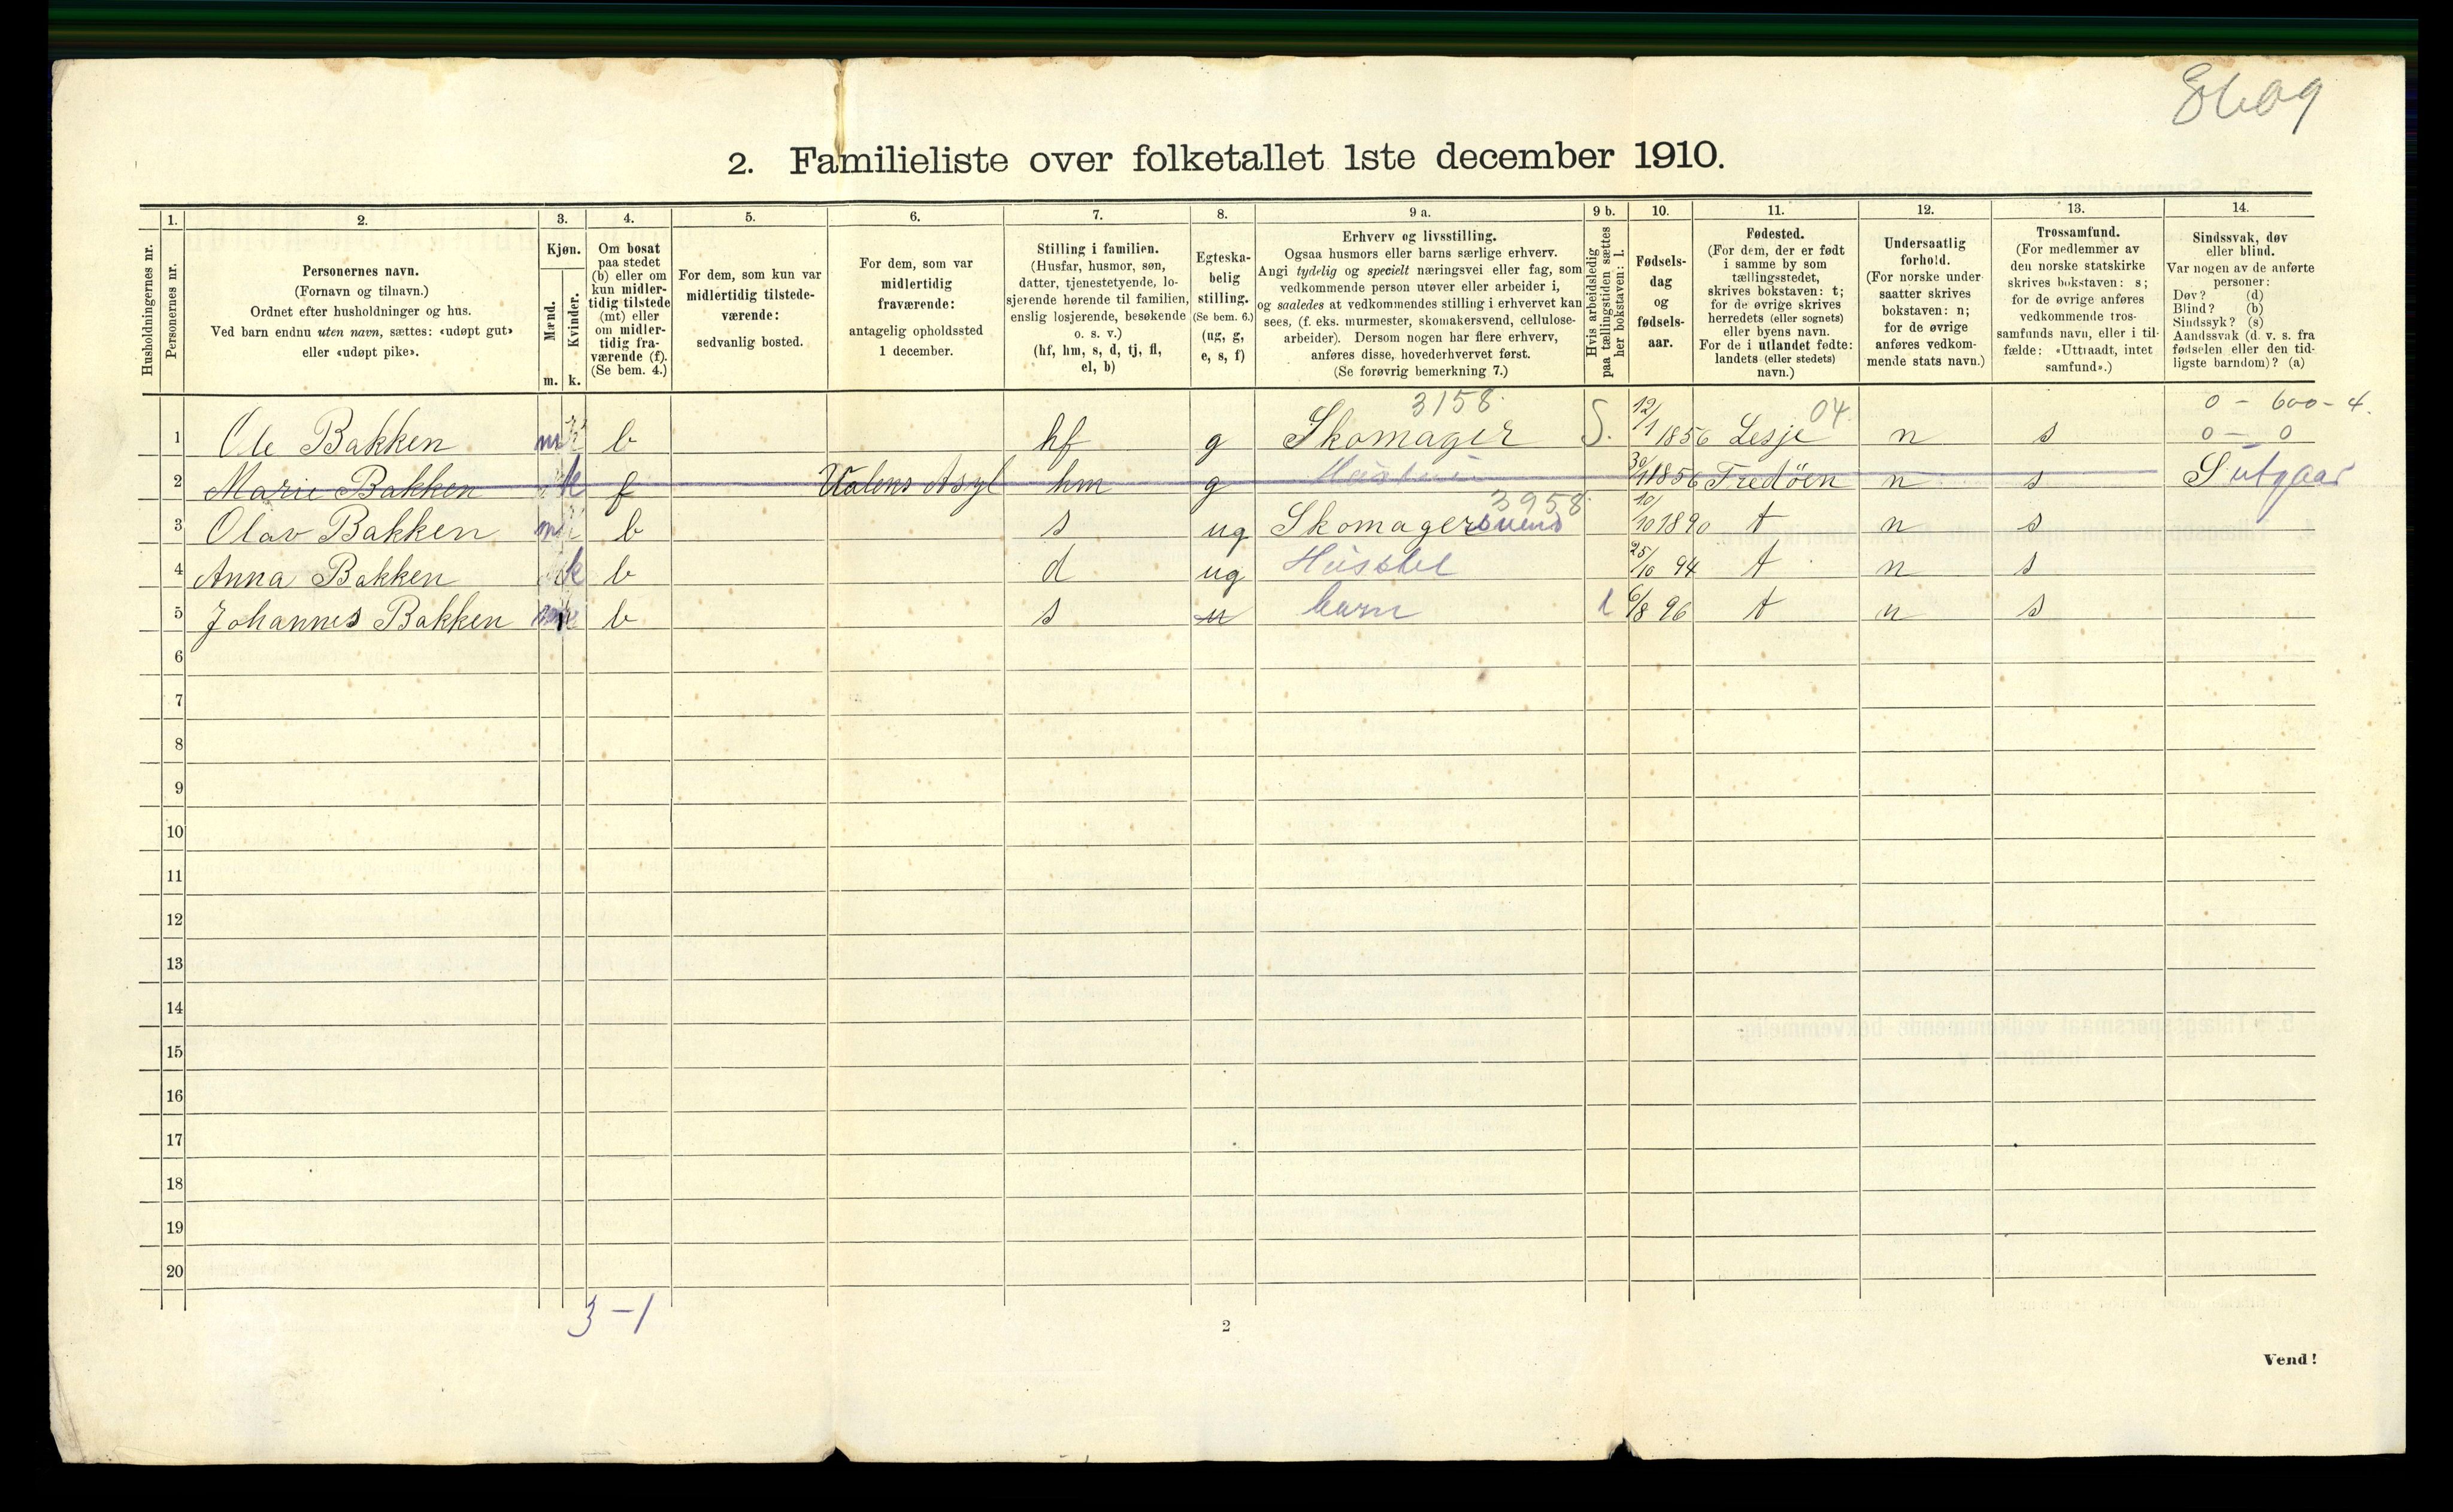 8609
2. Familieliste over folketallet 1ste december 1910.
Husholdningernes nr.
1. Personernes nr.
2. Personernes navn. (Fornavn og tilnavn.) Ordnet efter husholdninger og hus. Ved barn endnu uten navn, sættes: «udøpt gut» eller «udøpt pike».
3. Kjøn. Mænd. m. Kvinder. k.
4. Om bosat paa stedet (b) eller om kun midler-tidig tilstede (mt) eller om midler-tidig fra-værende (f). (Se bem. 4.)
5. For dem, som kun var midlertidig tilstede-værende: sedvanlig bosted.
6. For dem, som var midlertidig fraværende: antagelig opholdssted 1 december.
7. Stilling i familien. (Husfar, husmor, søn, datter, tjenestetyende, lo-sjerende hørende til familien, enslig losjerende, besøkende o. s. v.) (hf, hm, s, d, tj, fl, el, b)
8. Egteska-belig stilling. (Se bem. 6.) (ug, g, e, s, f)
9 a. Erhverv og livsstilling. Ogsaa husmors eller barns særlige erhverv. Angi tydelig og specielt næringsvei eller fag, som vedkommende person utøver eller arbeider i, og saaledes at vedkommendes stilling i erhvervet kan sees, (f. eks. murmester, skomakersvend, cellulose-arbeider). Dersom nogen har flere erhverv, anføres disse, hovederhvervet først. (Se forøvrig bemerkning 7.)
9 b. Hvis arbeidsledig paa tællingstiden sættes her bokstaven: l.
10. Fødsels-dag og fødsels-aar.
11. Fødested. (For dem, der er født i samme by som tællingsstedet, skrives bokstaven: t; for de øvrige skrives herredets (eller sognets) eller byens navn. For de i utlandet fødte: landets (eller stedets) navn.)
12. Undersaatlig forhold. (For norske under-saatter skrives bokstaven: n; for de øvrige anføres vedkom-mende stats navn.)
13. Trossamfund. (For medlemmer av den norske statskirke skrives bokstaven: s; for de øvrige anføres vedkommende tros-samfunds navn, eller i til-fælde: «Uttraadt, intet samfund».)
14. Sindssvak, døv eller blind. Var nogen av de anførte personer: Døv? (d) Blind? (b) Sindssyk? (s) Aandssvak (d. v. s. fra fødselen eller den tid-ligste barndom)? (a)
3158. 04. 0 - 600 - 4.
1 Ole Bakken m b hf g Skomager S. 12/1 1856 Lesje n s 0 - 0
2 Marie Bakken k f Valens Asyl hm g 30/11 1856 Fredöen n s S utgaar
3958.
3 Olav Bakken m b s ug Skomagersvend 10/10 1890 t n s
4 Anna Bakken k b d ug Husstel 25/10 94 t n s
5 Johannes Bakken m b s u barn l 6/8 96 t n s
6
7
8
9
10
11
12
13
14
15
16
17
18
19
20
3 - 1
2
Vend!